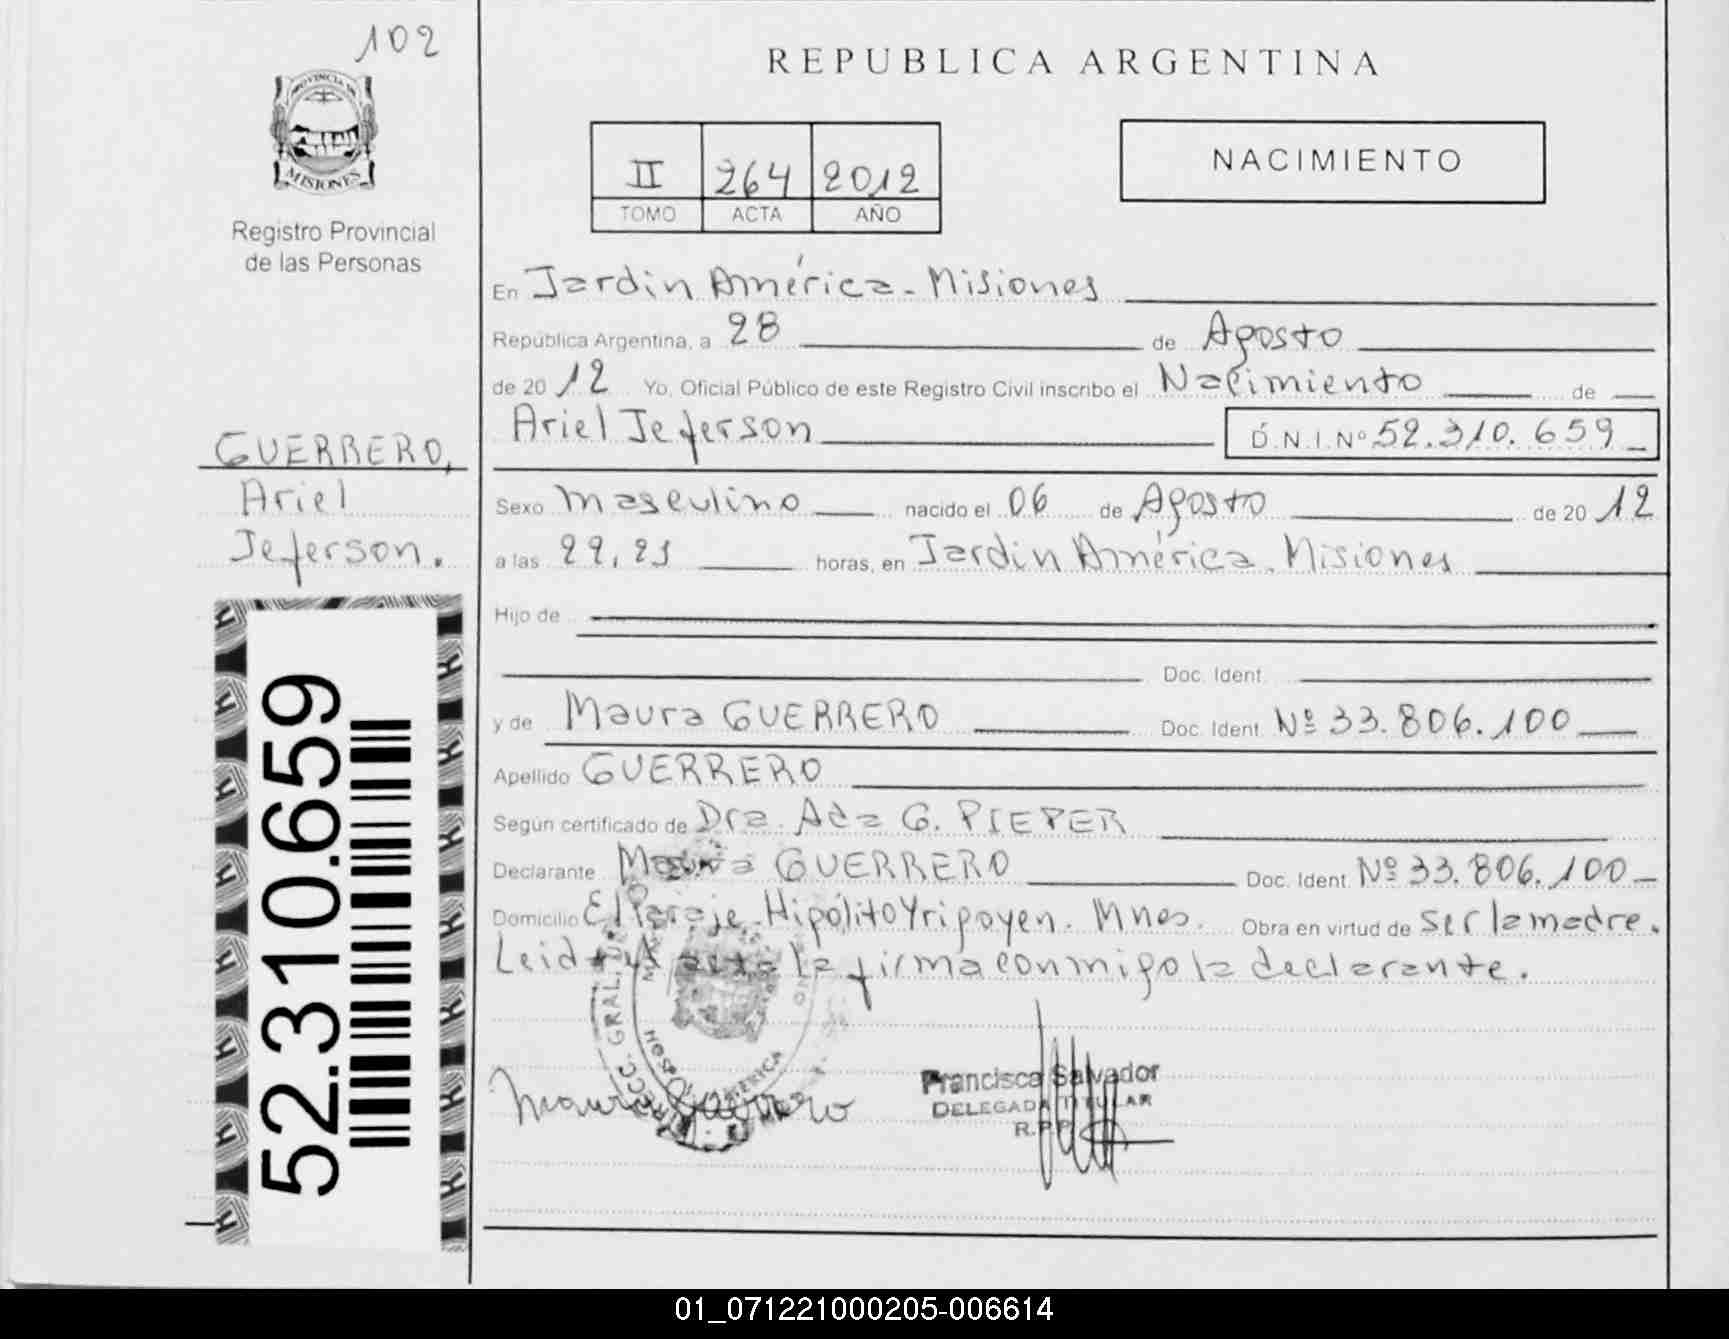 102
PROVINCIA DE
MISIONES
Registro Provincial
de las Personas
GUERRERO,
Ariel
Jeferson.
52.310.659
REPUBLICA ARGENTINA
II 264 2012
TOMO ACTA AÑO
NACIMIENTO
En Jardin América - Misiones
República Argentina, a 28 de Agosto
de 20 12 Yo, Oficial Público de este Registro Civil inscribo el Nacimiento de
Ariel Jeferson D.N.I.Nº 52.310.659
Sexo Masculino nacido el 06 de Agosto de 20 12
a las 22,25 horas, en Jardin América. Misiones
Hijo de
Doc. Ident.
y de Maura GUERRERO Doc. Ident. Nº 33.806.100
Apellido GUERRERO
Según certificado de Dra. Ada G. PIEPER
Declarante Maura GUERRERO Doc. Ident. Nº 33.806.100
Domicilio El Paraje - Hipólito Yrigoyen. Mnes. Obra en virtud de ser la madre.
Leida el acta la firma conmigo la declarante.
Maura Guerrero
Francisca Salvador
DELEGADA TITULAR
R.P.P.
01_071221000205-006614